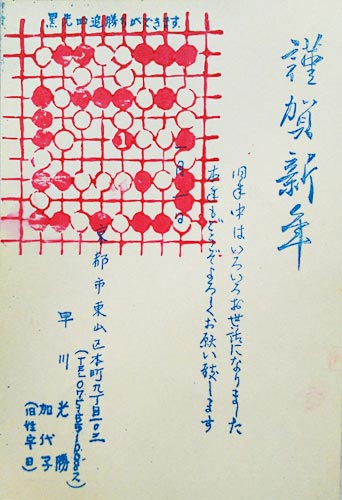 黒先四追勝ちができます
謹賀新年
旧年中はいろいろお世話になりました
本年もどうぞよろしくお願い致します
一月一日
京都市東山区本町九丁目一〇二
早川光勝
加代子
(旧姓辛旦)
1